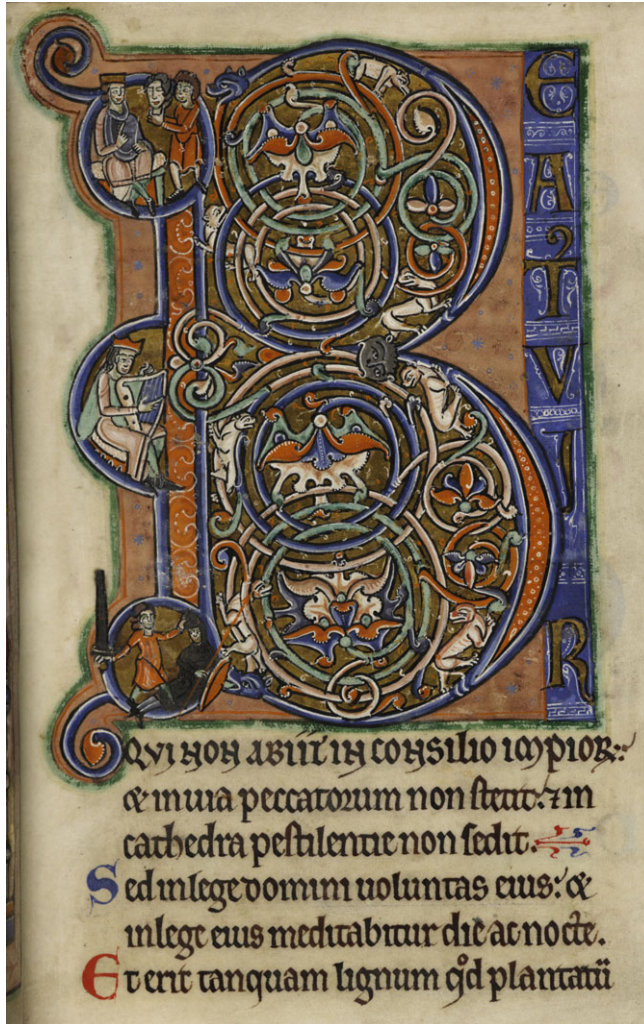 BEATUS VIR
QUI NON ABIIT IN CONSILIO IMPIOR:
⁊ in uia peccatorum non stetit: ⁊ in
cathedra pestilentie non sedit.
Sed in lege domini uoluntas eius: ⁊
in lege eius meditabitur die ac nocte.
Et erit tanquam lignum qd plantatū